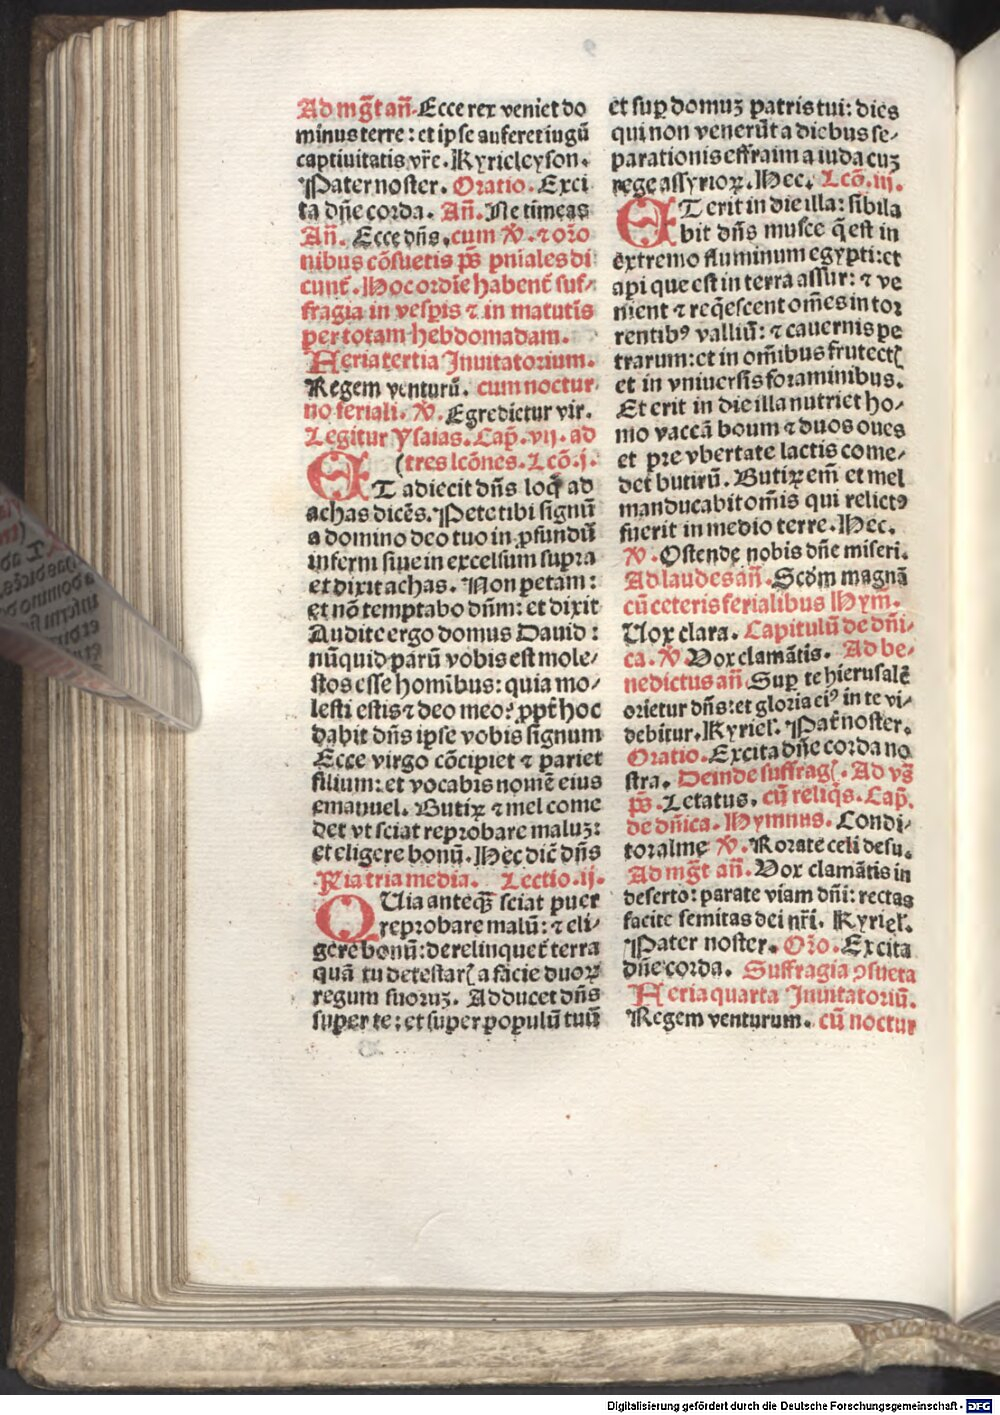 Ad mg̃t añ. Ecce rex veniet do
minus terre: et ipse auferet iugũ
captiuitatis vr̃e. Kyrieleyson.
Pater noster. Oratio. Exci
ta dñe corda. Añ. Ne timeas
Añ. Ecce dñs. cum ℣. ⁊ orõ
nibus cõsuetis ps̃ pniales di
cunt̃. Hoc ordīe habent̃ suf⸗
fragia in vesp̱is ⁊ in matutīs
per totam hebdomadam.
Feria tertia Inuitatorium.
Regem venturũ. cum noctur⸗
no feriali. ℣. Egredietur vir.
Legitur Ysaias. Cap̃. vij. ad
(tres lcõnes. Lcõ. j.
ET adiecit dñs loq̃ ad
achas dicẽs. Pete tibi signũ
a domino deo tuo in ꝓfundũ
inferni siue in excelsum supra
et dixit achas. Non petam:
et nõ temptabo dñm: et dixit
Audite ergo domus Dauid:
nũquid parũ vobis est mole⸗
stos esse homībus: quia mo⸗
lesti estis ⁊ deo meo? ꝓpt̃ hoc
dabit dñs ipse vobis signum
Ecce virgo cõcipiet ⁊ pariet
filium: et vocabis nomẽ eius
emanuel. Butiꝝ ⁊ mel come
det vt sciat reprobare maluʒ:
et eligere bonũ. Hec dic̃ dñs
Ria tria media. Lectio. ij.
QUia anteq̃ʒ sciat puer
reprobare malũ: ⁊ eli⸗
gere bonũ: derelinquet̃ terra
quã tu detestarꝭ a facie duoꝝ
regum suoruʒ. Adducet dñs
super te: et super populũ tuũ
et suꝑ domuʒ patris tui: dies
qui non venerũt a diebus se⸗
parationis effraim a iuda cuʒ
rege assyrioꝝ. Hec. Lcõ. iij.
ET erit in die illa: sibila
bit dñs musce q̃ est in
extremo fluminum egypti: et
api que est in terra assur: ⁊ ve
nient ⁊ reqͥescent om̃es in tor
rentibꝰ valliũ: ⁊ cauernis pe
trarum: et in om̃ibus frutectꝭ
et in vniuersis foraminibus.
Et erit in die illa nutriet ho⸗
mo vaccã boum ⁊ duos oues
et pre vbertate lactis come⸗
det butirũ. Butiꝝ em̃ et mel
manducabit om̃is qui relictꝰ
fuerit in medio terre. Hec.
℣. Ostende nobis dñe miseri.
Ad laudes añ. Scõm magnã
cũ ceteris ferialibus Hym̃.
Uox clara. Capitulũ de dñi⸗
ca. ℣. Vox clamãtis. Ad be⸗
nedictus añ. Suꝑ te hierusalẽ
orietur dñs: et gloria eiꝰ in te vi⸗
debitur. Kyriel̃. Pat̃ noster.
Oratio. Excita dñe corda no
stra. Deinde suffragꝭ. Ad vs̃
ps̃. Letatus. cũ reliqͥs. Cap̃.
de dñica. Hymnus. Condi⸗
tor alme ℣. Rorate celi desu.
Ad mg̃t añ. Vox clamãtis in
deserto: parate viam dñi: rectas
facite semitas dei nr̃i. Kyriel̃.
Pater noster. Orõ. Excita
dñe corda. Suffragia ꝯsueta
Feria quarta Inuitatoriũ.
Regem venturum. cũ noctur
Digitalisierung gefördert durch die Deutsche Forschungsgemeinschaft - DFG